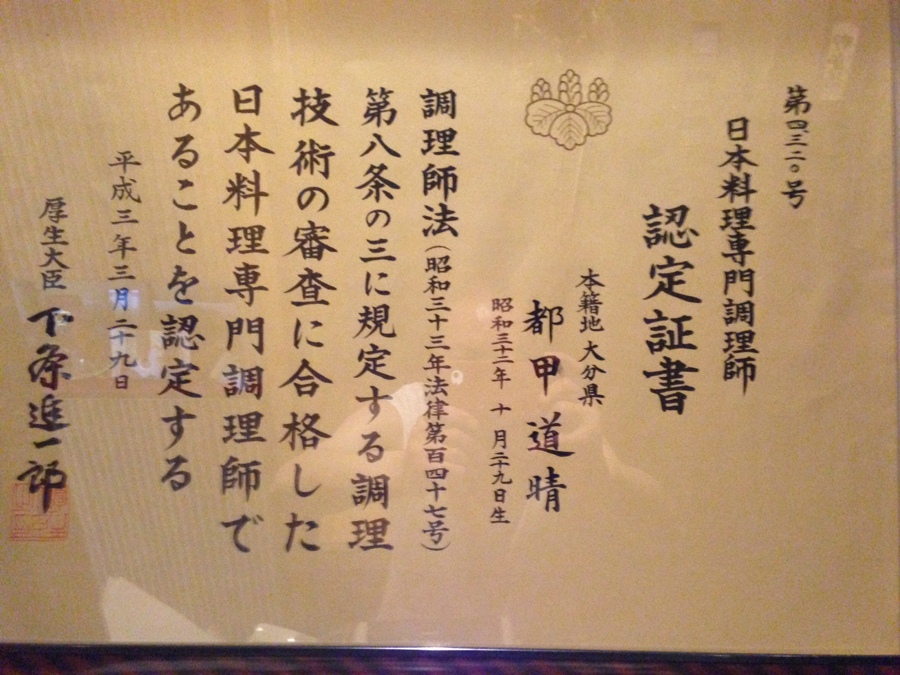 第四三二〇号
日本料理専門調理師
認定証書
本籍地 大分県
都甲道晴
昭和三十二年 十月二十九日生
調理師法(昭和三十三年法律第百四十七号)
第八条の三に規定する調理
技術の審査に合格した
日本料理専門調理師で
あることを認定する
平成三年三月二十九日
厚生大臣 下条進一郎